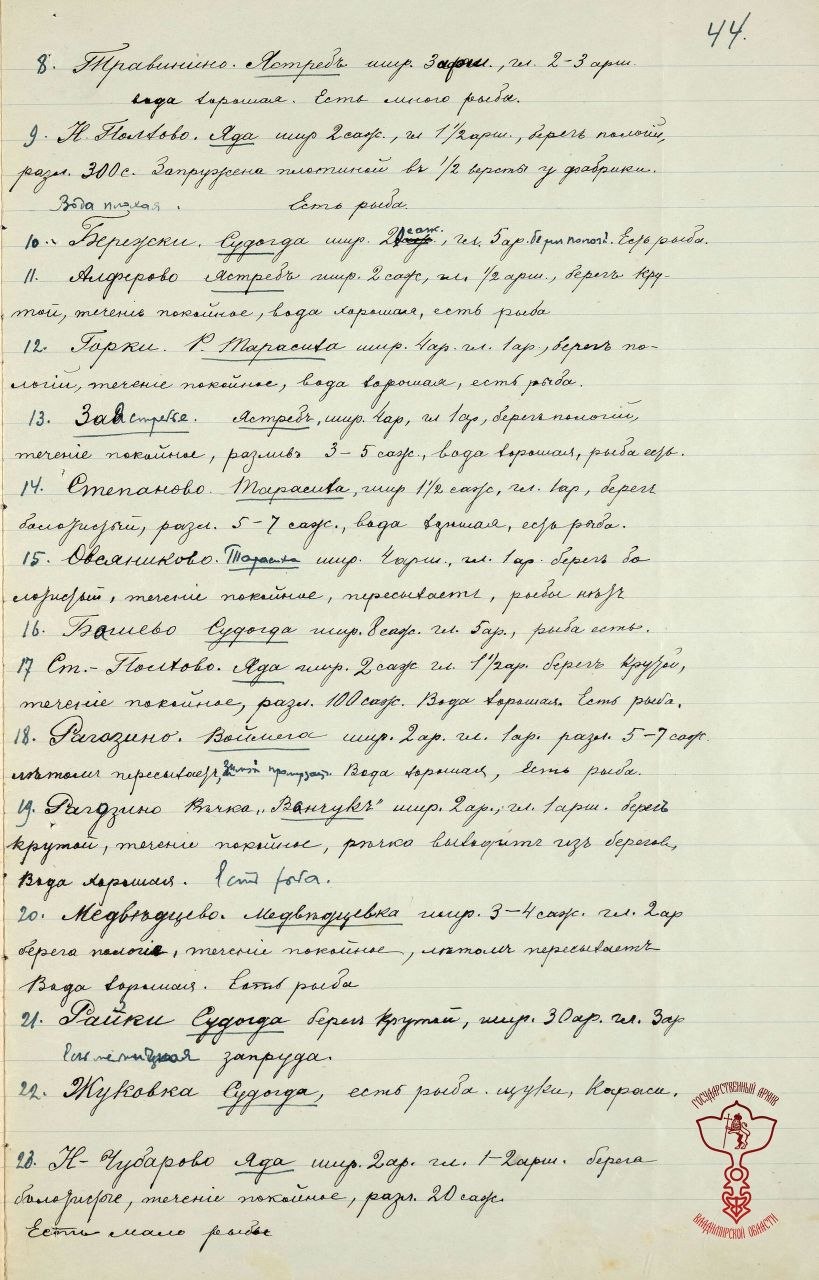 44.
8. Травинино. Ястребъ шир. 3 арш., гл. 2-3 арш.
вода хорошая. Есть много рыба.
9. Н. Полхово. Яда шир 2 саж., гл 1 1/2 арш., берегъ пологій,
разл. 300 с. Запружена плотиной въ 1/2 версты у фабрики.
Вода плохая. Есть рыба.
10. Бережки. Судогда шир. 20 саж., гл. 5 ар. берег полог. Есть рыба.
11. Алферово Ястребъ шир. 2 саж, гл. 1/2 арш., берегъ кру-
той, теченіе покойное, вода хорошая, есть рыба
12. Горки. Р. Тарасиха шир. 4 ар. гл. 1 ар., берегъ по-
логій, теченіе покойное, вода хорошая, есть рыба.
13. Заястребье. Ястребъ, шир. 4 ар, гл 1 ар, берегъ пологій,
теченіе покойное, разливъ 3-5 саж., вода хорошая, рыба есть.
14. Степаново. Тарасиха, шир 1 1/2 саж, гл. 1 ар, берегъ
болотистый, разл. 5-7 саж., вода хорошая, есть рыба.
15. Овсяниково. Тарасиха шир. 4 арш., гл. 1 ар. берегъ бо
лотистый, теченіе покойное, пересыхаетъ, рыбы нѣтъ
16. Башево Судогда шир. 8 саж. гл. 5 ар., рыба есть.
17 Ст.- Полхово. Яда шир. 2 саж гл. 1 1/2 ар. берегъ крутой,
теченіе покойное, разл. 100 саж. Вода хорошая. Есть рыба.
18. Рагозино. Войнега шир. 2 ар. гл. 1 ар. разл. 5-7 саж.
лѣтомъ пересыхаетъ, зимой промерзает. Вода хорошая, Есть рыба.
19. Рагозино Рѣчка „Ванчукъ" шир. 2 ар., гл. 1 арш. берегъ
крутой, теченіе покойное, рѣчка выходитъ изъ берегов,
Вода хорошая. Есть рыба.
20. Медвѣдцево. Медвѣдцевка шир. 3-4 саж. гл. 2 ар
берега пологіе, теченіе покойное, лѣтомъ пересыхаетъ
Вода хорошая. Есть рыба
21. Райки Судогда берегъ крутой, шир. 30 ар. гл. 3 ар
Есть запруда.
22. Жуковка Судогда, есть рыба щуки, Караси.
23. Н- Чубарово Яда шир. 2 ар. гл. 1-2 арш. берега
болотистые, теченіе покойное, разл. 20 саж.
Есть мало рыбы
ГОСУДАРСТВЕННЫЙ АРХИВ
ВЛАДИМИРСКОЙ ОБЛАСТИ